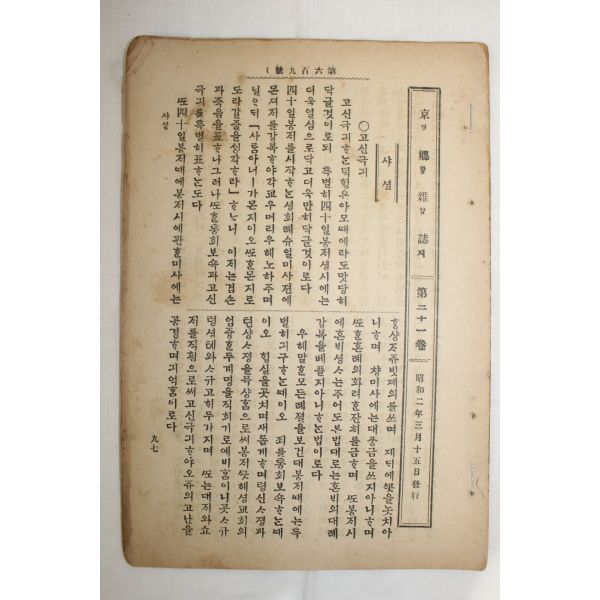 第六百九號
京경鄕향雜잡誌지 第二十一卷 昭和二年三月十五日發行
샤셜
○고신극긔
고신극긔ᄒᆞᄂᆞᆫ덕ᄒᆡᆼ은아모때에라도맛당히
닥글것이로되 특별히四十일봉ᄌᆡ셩시에는
더욱열심으로닥고더욱만히닥글것이로다
四十일봉ᄌᆡ를시작ᄒᆞᄂᆞᆫ셩회례슈일미사젼에
몬져ᄌᆡ를강복ᄒᆞ야각교우머리우헤노하주며
닐ᄋᆞᄃᆡ 「사ᄅᆞᆷ아너ㅣ가몬지이오ᄯᅩᄒᆞᆫ몬지로
도라갈줄을ᄉᆡᆼ각ᄒᆞ라」ᄒᆞᄂᆞ니 이ᄌᆡ는겸손
과죽음을표ᄒᆞ나그러나ᄯᅩᄒᆞᆫ통회보쇽과고신
극긔를특별히표ᄒᆞᄂᆞᆫ도다
ᄯᅩ四十일봉ᄌᆡ때에봉ᄌᆡ시에관ᄒᆞᆫ미사에는
ᄒᆞᆼ샹ᄌᆞ쥬빗졔의를쓰며 졔ᄃᆡ에ᄭᅩᆺ을놋치아
니ᄒᆞ며 챵미사에는대풍금을쓰지아니ᄒᆞ며
ᄯᅩᄒᆞᆫ혼례의화려ᄒᆞᆫ잔치를금ᄒᆞ며 ᄯᅩ봉ᄌᆡ시
에혼ᄇᆡ셩ᄉᆞ는주어도본법대로는혼ᄇᆡ의대례
강복을베플지아니ᄒᆞᄂᆞᆫ법이로다
우헤말ᄒᆞᆫ모든례졀을보건대봉ᄌᆡ때에는특
별히긔구ᄒᆞᄂᆞᆫ때이오 죄를통회보쇽ᄒᆞᄂᆞᆫ때
이오 ᄒᆡᆼ실을곳치며새롭게ᄒᆞ며령신ᄉᆞ졍과
텬샹ᄉᆞ졍을묵샹ᄒᆞᆷ으로써봉ᄌᆡ뒷헤셩교회의
엄즁ᄒᆞᆫ두계명을직희기로예비ᄒᆞᆷ이니곳ᄉᆞ규
령셩톄와ᄉᆞ규고ᄒᆡ두가지며 ᄯᅩ는대ᄌᆡ와쇼
ᄌᆡ를직흼으로써고신극긔ᄒᆞ야오쥬의고난을
공경ᄒᆞ며긔억ᄒᆞᆷ이로다
샤셜
九七